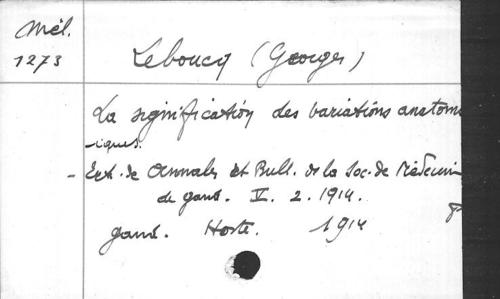 Mél.
1273
Leboucq (Georges)
La signification des variations anatom
-iques.
- Ext. de Annales et Bull. de la Soc. de Médecin
de gand. V. 2. 1914.
gand. Hoste. 1914
8